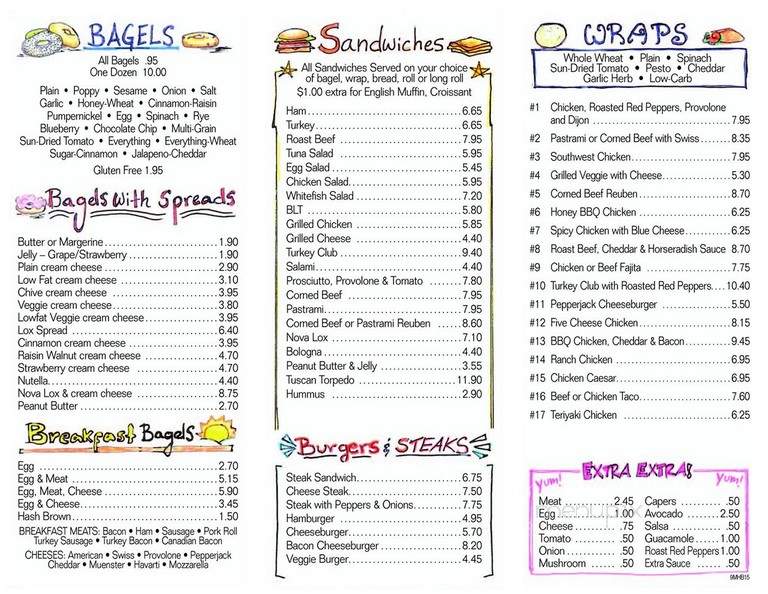 BAGELS
All Bagels .95
One Dozen 10.00
Plain • Poppy • Sesame • Onion • Salt
Garlic • Honey-Wheat • Cinnamon-Raisin
Pumpernickel • Egg • Spinach • Rye
Blueberry • Chocolate Chip • Multi-Grain
Sun-Dried Tomato • Everything • Everything-Wheat
Sugar-Cinnamon • Jalapeno-Cheddar
Gluten Free 1.95
Bagels With Spreads
Butter or Margerine 1.90
Jelly – Grape/Strawberry 1.90
Plain cream cheese 2.90
Low Fat cream cheese 3.10
Chive cream cheese 3.95
Veggie cream cheese 3.80
Lowfat Veggie cream cheese 3.95
Lox Spread 6.40
Cinnamon cream cheese 3.95
Raisin Walnut cream cheese 4.70
Strawberry cream cheese 4.70
Nutella 4.40
Nova Lox & cream cheese 8.75
Peanut Butter 2.70
Breakfast Bagels
Egg 2.70
Egg & Meat 5.15
Egg, Meat, Cheese 5.90
Egg & Cheese 3.45
Hash Brown 1.50
BREAKFAST MEATS: Bacon • Ham • Sausage • Pork Roll
Turkey Sausage • Turkey Bacon • Canadian Bacon
CHEESES: American • Swiss • Provolone • Pepperjack
Cheddar • Muenster • Havarti • Mozzarella
Sandwiches
All Sandwiches Served on your choice
of bagel, wrap, bread, roll or long roll
$1.00 extra for English Muffin, Croissant
Ham 6.65
Turkey 6.65
Roast Beef 7.95
Tuna Salad 5.95
Egg Salad 5.45
Chicken Salad 5.95
Whitefish Salad 7.20
BLT 5.80
Grilled Chicken 5.85
Grilled Cheese 4.40
Turkey Club 9.40
Salami 4.40
Prosciutto, Provolone & Tomato 7.80
Corned Beef 7.95
Pastrami 7.95
Corned Beef or Pastrami Reuben 8.60
Nova Lox 7.10
Bologna 4.40
Peanut Butter & Jelly 3.55
Tuscan Torpedo 11.90
Hummus 2.90
Burgers & STEAKS
Steak Sandwich 6.75
Cheese Steak 7.50
Steak with Peppers & Onions 7.75
Hamburger 4.95
Cheeseburger 5.70
Bacon Cheeseburger 8.20
Veggie Burger 4.45
WRAPS
Whole Wheat • Plain • Spinach
Sun-Dried Tomato • Pesto • Cheddar
Garlic Herb • Low-Carb
#1 Chicken, Roasted Red Peppers, Provolone
and Dijon 7.95
#2 Pastrami or Corned Beef with Swiss 8.35
#3 Southwest Chicken 7.95
#4 Grilled Veggie with Cheese 5.30
#5 Corned Beef Reuben 8.70
#6 Honey BBQ Chicken 6.25
#7 Spicy Chicken with Blue Cheese 6.25
#8 Roast Beef, Cheddar & Horseradish Sauce 8.70
#9 Chicken or Beef Fajita 7.75
#10 Turkey Club with Roasted Red Peppers 10.40
#11 Pepperjack Cheeseburger 5.50
#12 Five Cheese Chicken 8.15
#13 BBQ Chicken, Cheddar & Bacon 9.45
#14 Ranch Chicken 6.95
#15 Chicken Caesar 6.95
#16 Beef or Chicken Taco 7.60
#17 Teriyaki Chicken 6.25
EXTRA EXTRA!
yum! yum!
Meat 2.45 Capers .50
Egg 1.00 Avocado 2.50
Cheese .75 Salsa .50
Tomato .50 Guacamole 1.00
Onion .50 Roast Red Peppers 1.00
Mushroom .50 Extra Sauce .50
9MHB15